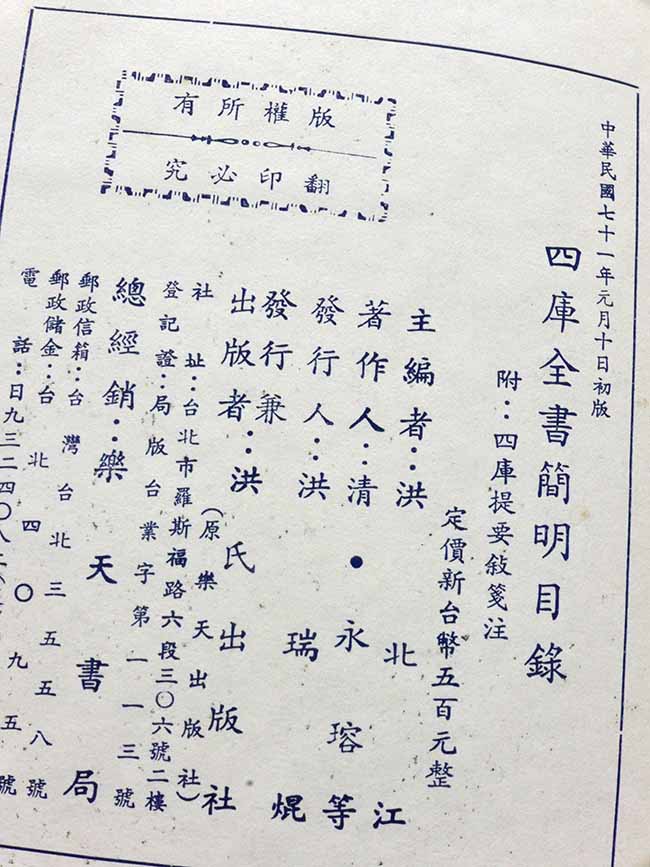 中華民國七十一年元月十日初版
四庫全書簡明目錄
附：四庫提要敍箋注
定價新台幣五百元整
版權所有
翻印必究
主編者：洪北江
著作人：清•永瑢等
發行人：洪瑞焜
發行兼
出版者：洪氏出版社
（原樂天出版社）
社址：台北市羅斯福路六段三○六號二樓
登記證：局版台業字第一一三號
總經銷：樂天書局
郵政信箱：台灣台北三五五八號
郵政儲金：台北四○九五號
電話：日九三二四○八二